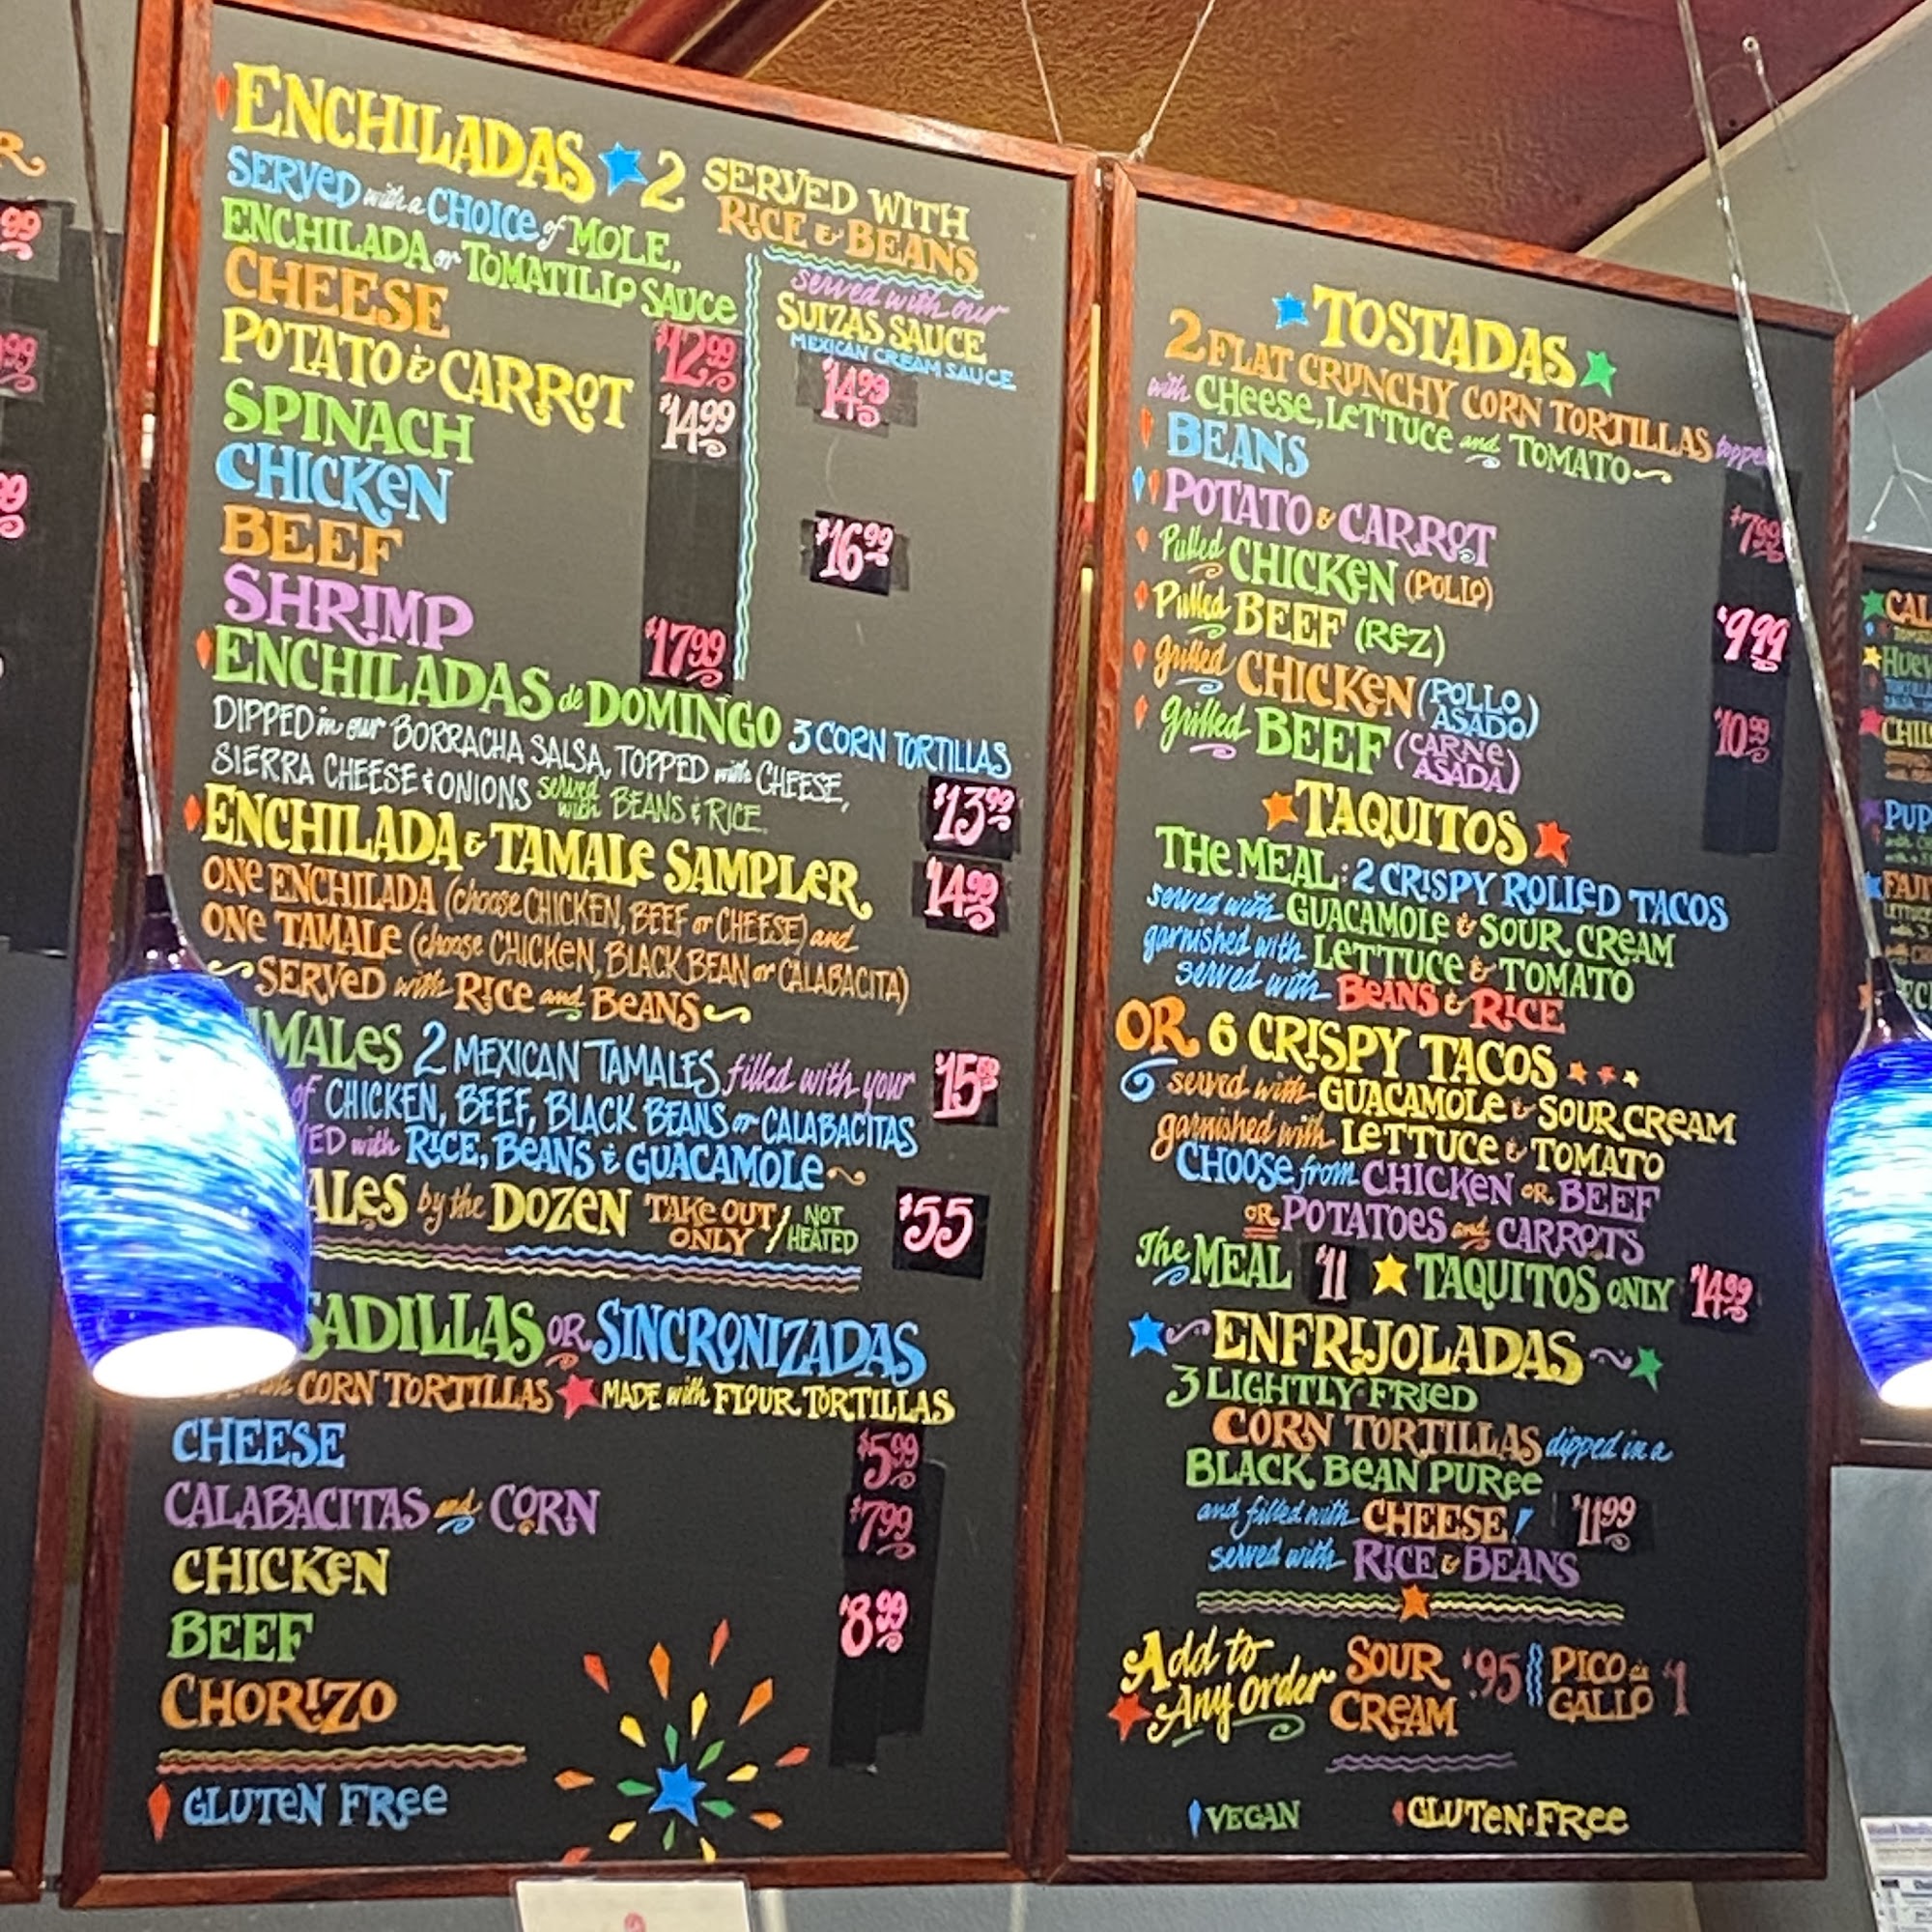 ENCHILADAS 2 SERVED WITH RICE & BEANS
SERVED with a CHOICE of MOLE,
ENCHILADA or TOMATILLO SAUCE
served with our
SUIZAS SAUCE
MEXICAN CREAM SAUCE
CHEESE $12.99 $14.99
POTATO & CARROT $14.99
SPINACH
CHICKEN $16.99
BEEF
SHRIMP $17.99
ENCHILADAS de DOMINGO 3 CORN TORTILLAS
DIPPED in our BORRACHA SALSA, TOPPED with CHEESE,
SIERRA CHEESE & ONIONS served with BEANS & RICE. $13.99
ENCHILADA & TAMALE SAMPLER $14.99
ONE ENCHILADA (choose CHICKEN, BEEF or CHEESE) and
ONE TAMALE (choose CHICKEN, BLACK BEAN or CALABACITA)
SERVED with RICE and BEANS
MALES 2 MEXICAN TAMALES filled with your
of CHICKEN, BEEF, BLACK BEANS or CALABACITAS
ED with RICE, BEANS & GUACAMOLE
ALES by the DOZEN TAKE OUT ONLY / NOT HEATED $55
SADILLAS OR SINCRONIZADAS
CORN TORTILLAS MADE with FLOUR TORTILLAS
CHEESE $5.99
CALABACITAS and CORN $7.99
CHICKEN
BEEF $8.99
CHORIZO
GLUTEN FREE
TOSTADAS
2 FLAT CRUNCHY CORN TORTILLAS
with CHEESE, LETTUCE and TOMATO
BEANS
POTATO & CARROT $7.99
Pulled CHICKEN (POLLO)
Pulled BEEF (REZ) $9.99
grilled CHICKEN (POLLO ASADO)
grilled BEEF (CARNE ASADA) $10.99
TAQUITOS
THE MEAL: 2 CRISPY ROLLED TACOS
served with GUACAMOLE & SOUR CREAM
garnished with LETTUCE & TOMATO
served with BEANS & RICE
OR 6 CRISPY TACOS
served with GUACAMOLE & SOUR CREAM
garnished with LETTUCE & TOMATO
CHOOSE from CHICKEN OR BEEF
OR POTATOES and CARROTS
The MEAL $11 TAQUITOS ONLY $14.99
ENFRIJOLADAS
3 LIGHTLY FRIED
CORN TORTILLAS dipped in a
BLACK BEAN PUREE
and filled with CHEESE! $11.99
served with RICE & BEANS
Add to Any Order SOUR CREAM $.95 PICO de GALLO $1
VEGAN GLUTEN-FREE